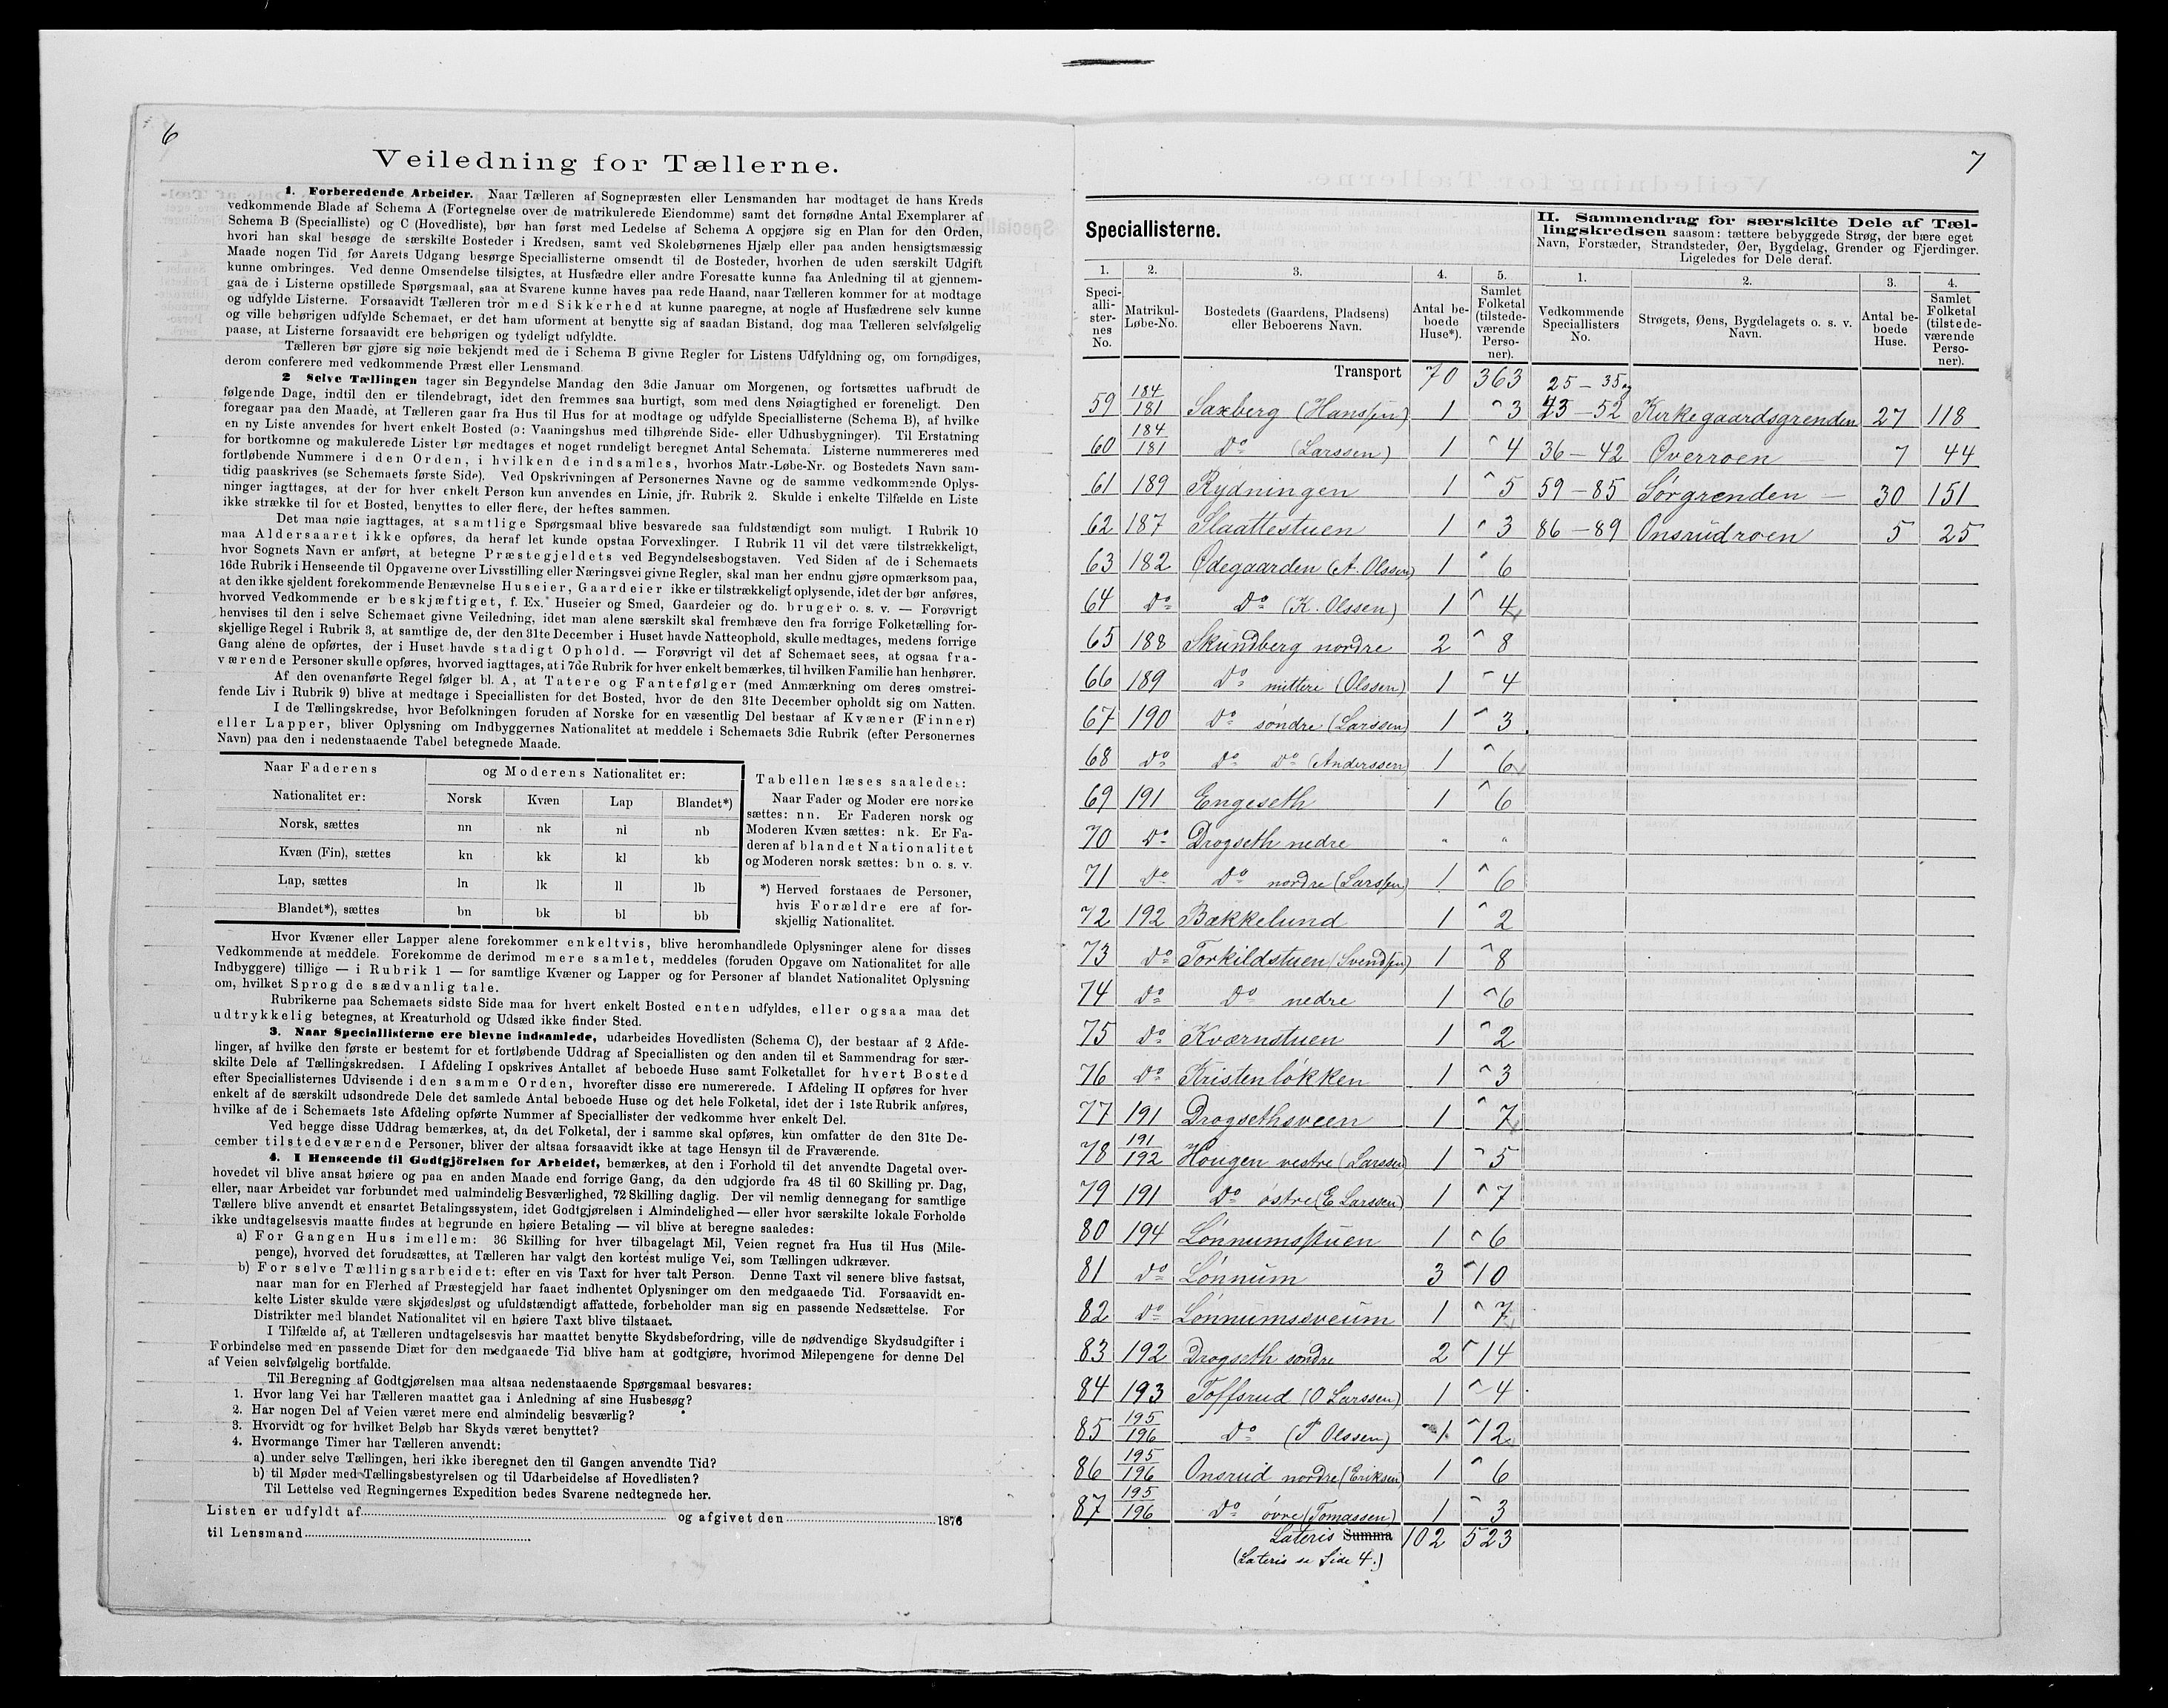 6
Veiledning for Tællerne.
1. Forberedende Arbeider. Naar Tælleren af Sognepræsten eller Lensmanden har modtaget de hans Kreds
vedkommende Blade af Schema A (Fortegnelse over de matrikulerede Eiendomme) samt det fornødne Antal Exemplarer af
Schema B (Specialliste) og C (Hovedliste), bør han først med Ledelse af Schema A opgjøre sig en Plan for den Orden,
hvori han skal besøge de særskilte Bosteder i Kredsen, samt ved Skolebørnenes Hjælp eller paa anden hensigtsmæssig
Maade nogen Tid før Aarets Udgang besørge Speciallisterne omsendt til de Bosteder, hvorhen de uden særskilt Udgift
kunne ombringes. Ved denne Omsendelse tilsigtes, at Husfædre eller andre Foresatte kunne faa Anledning til at gjennem-
gaa de i Listerne opstillede Spørgsmaal, saa at Svarene kunne haves paa rede Haand, naar Tælleren kommer for at modtage
og udfylde Listerne. Forsaavidt Tælleren tror med Sikkerhed at kunne paaregne, at nogle af Husfædrene selv kunne
og ville behørigen udfylde Schemaet, er det ham uforment at benytte sig af saadan Bistand, dog maa Tælleren selvfølgelig
paase, at Listerne forsaavidt ere behørigen og tydeligt udfyldte.
Tælleren bør gjøre sig nøie bekjendt med de i Schema B givne Regler for Listens Udfyldning og, om fornødiges,
derom conferere med vedkommende Præst eller Lensmand
2 Selve Tællingen tager sin Begyndelse Mandag den 3die Januar om Morgenen, og fortsættes uafbrudt de
følgende Dage, indtil den er tilendebragt, idet den fremmes saa hurtigt, som med dens Nøiagtighed er foreneligt. Den
foregaar paa den Maade, at Tælleren gaar fra Hus til Hus for at modtage og udfylde Speciallisterne (Schema B), af hvilke
en ny Liste anvendes for hvert enkelt Bosted (ɔ: Vaaningshus med tilhørende Side- eller Udhusbygninger). Til Erstatning
for bortkomne og makulerede Lister bør medtages et noget rundeligt beregnet Antal Schemata. Listerne nummereres med
fortløbende Nummere i den Orden, i hvilken de indsamles, hvorhos Matr.-Løbe-Nr. og Bostedets Navn sam-
tidig paaskrives (se Schemaets første Side). Ved Opskrivningen af Personernes Navne og de samme vedkommende Oplys-
ninger iagttages, at der for hver enkelt Person kun anvendes en Linie, jfr. Rubrik 2. Skulde i enkelte Tilfælde en Liste
ikke strække til for et Bosted, benyttes to eller flere, der heftes sammen.
Det maa nøie iagttages, at samtlige Spørgsmaal blive besvarede saa fuldstændigt som muligt. I Rubrik 10
maa Aldersaaret ikke opføres, da heraf let kunde opstaa Forvexlinger. I Rubrik 11 vil det være tilstrækkeligt,
hvor Sognets Navn er anført, at betegne Præstegjeldets ved Begyndelsesbogstaven. Ved Siden af de i Schemaets
16de Rubrik i Henseende til Opgaverne over Livsstilling eller Næringsvei givne Regler, skal man her endnu gjøre opmærksom paa,
at den ikke sjeldent forekommende Benævnelse Huseier, Gaardeier ikke er tilstrækkeligt oplysende, idet der bør anføres,
hvorved Vedkommende er beskjæftiget, f. Ex. Huseier og Smed, Gaardeier og do. bruger o. s. v. — Forøvrigt
henvises til den i selve Schemaet givne Veiledning, idet man alene særskilt skal fremhæve den fra forrige Folketælling for-
skjellige Regel i Rubrik 3, at samtlige de, der den 31te December i Huset havde Natteophold, skulle medtages, medens forrige
Gang alene de opførtes, der i Huset havde stadigt Ophold. — Forøvrigt vil det af Schemaet sees, at ogsaa fra-
værende Personer skulle opføres, hvorved iagttages, at i 7de Rubrik for hver enkelt bemærkes, til hvilken Familie han henhører.
Af den ovenanførte Regel følger bl. A, at Tatere og Fantefølger (med Anmærkning om deres omstrei-
fende Liv i Rubrik 9) blive at medtage i Speciallisten for det Bosted, hvor de den 31te December opholdt sig om Natten.
I de Tællingskredse, hvor Befolkningen foruden af Norske for en væsentlig Del bestaar af Kvæner (Finner)
eller Lapper, bliver Oplysning om Indbyggernes Nationalitet at meddele i Schemaets 3die Rubrik (efter Personernes
Navn) paa den i nedenstaaende Tabel betegnede Maade.
Naar Faderens Nationalitet er: og Moderens Nationalitet er:
Norsk Kvæn Lap Blandet*)
Norsk, sættes nn nk nl nb
Kvæn (Fin), sættes kn kk kl kb
Lap, sættes ln lk ll lb
Blandet*), sættes bn bk bl bb
Tabellen læses saaledes:
Naar Fader og Moder ere norske
sættes: nn. Er Faderen norsk og
Moderen Kvæn sættes: nk. Er Fa-
deren af blandet Nationalitet
og Moderen norsk sættes: bn o. s. v.
*) Herved forstaaes de Personer,
hvis Forældre ere af for-
skjellig Nationalitet.
Hvor Kvæner eller Lapper alene forekommer enkeltvis, blive heromhandlede Oplysninger alene for disses
Vedkommende at meddele. Forekomme de derimod mere samlet, meddeles (foruden Opgave om Nationalitet for alle
Indbyggere) tillige — i Rubrik 1 — for samtlige Kvæner og Lapper og for Personer af blandet Nationalitet Oplysning
om, hvilket Sprog de sædvanlig tale.
Rubrikerne paa Schemaets sidste Side maa for hvert enkelt Bosted enten udfyldes, eller ogsaa maa det
udtrykkelig betegnes, at Kreaturhold og Udsæd ikke finder Sted.
3. Naar Speciallisterne ere blevne indsamlede, udarbeides Hovedlisten (Schema C), der bestaar af 2 Afde-
linger, af hvilke den første er bestemt for et fortløbende Uddrag af Speciallisten og den anden til et Sammendrag for sær-
skilte Dele af Tællingskredsen. I Afdeling I opskrives Antallet af beboede Huse samt Folketallet for hvert Bosted
efter Speciallisternes Udvisende i den samme Orden, hvorefter disse ere numererede. I Afdeling II opføres for hver
enkelt af de særskilt udsondrede Dele det samlede Antal beboede Huse og det hele Folketal, idet der i 1ste Rubrik anføres,
hvilke af de i Schemaets 1ste Afdeling opførte Nummer af Speciallister der vedkomme hver enkelt Del.
Ved begge disse Uddrag bemærkes, at, da det Folketal, der i samme skal opføres, kun omfatter de den 31te De-
cember tilstedeværende Personer, bliver der altsaa forsaavidt ikke at tage Hensyn til de Fraværende.
4. I Henseende til Godtgjörelsen for Arbeidet, bemærkes, at den i Forhold til det anvendte Dagetal over-
hovedet vil blive ansat høiere og paa en anden Maade end forrige Gang, da den udgjorde fra 48 til 60 Skilling pr. Dag,
eller, naar Arbeidet var forbundet med ualmindelig Besværlighed, 72 Skilling daglig. Der vil nemlig dennegang for samtlige
Tællere blive anvendt et ensartet Betalingssystem, idet Godtgjørelsen i Almindelighed — eller hvor særskilte lokale Forholde
ikke undtagelsesvis maatte findes at begrunde en høiere Betaling — vil blive at beregne saaledes:
a) For Gangen Hus imellem: 36 Skilling for hver tilbagelagt Mil, Veien regnet fra Hus til Hus (Mile-
penge), hvorved det forudsættes, at Tælleren har valgt den kortest mulige Vei, som Tællingen udkræver.
b) For selve Tællingsarbeidet: efter en vis Taxt for hver talt Person. Denne Taxt vil senere blive fastsat,
naar man for en Flerhed af Præstegjeld har faaet indhentet Oplysninger om den medgaaede Tid. Forsaavidt en-
kelte Lister skulde være skjødesløst og ufuldstændigt affattede, forbeholder man sig en passende Nedsættelse. For
Distrikter med blandet Nationalitet vil en høiere Taxt blive tilstaaet.
I Tilfælde af, at Tælleren undtagelsesvis har maattet benytte Skydsbefordring, ville de nødvendige Skydsudgifter i
Forbindelse med en passende Diæt for den medgaaede Tid blive ham at godtgjøre, hvorimod Milepengene for denne Del
af Veien selvfølgelig bortfalde.
Til Beregning af Godtgjørelsen maa altsaa nedenstaaende Spørgsmaal besvares:
1. Hvor lang Vei har Tælleren maattet gaa i Anledning af sine Husbesøg?
2. Har nogen Del af Veien været mere end almindelig besværlig?
3. Hvorvidt og for hvilket Beløb har Skyds været benyttet?
4. Hvormange Timer har Tælleren anvendt:
a) under selve Tællingen, heri ikke iberegnet den til Gangen anvendte Tid?
b) til Møder med Tællingsbestyrelsen og til Udarbeidelse af Hovedlisten?
Til Lettelse ved Regningernes Expedition bedes Svarene nedtegnede her.
Listen er udfyldt af og afgivet den 1876
til Lensmand
7
Speciallisterne.
1. 2. 3. 4. 5.
Speci-alli-ster-nes No. Matrikul-Løbe-No. Bostedets (Gaardens, Pladsens) eller Beboerens Navn. Antal be-boede Huse*). Samlet Folketal (tilstede-værende Perso-ner).
Transport 70 363
59 184/181 Saxberg (Hanssen) 1 3
60 184/181 Do (Larssen) 1 4
61 189 Rydningen 1 5
62 187 Slaattestuen 1 3
63 182 Ødegaarden (A. Olssen) 1 6
64 Do Do (K. Olssen) 1 4
65 188 Skundberg nordre 2 8
66 189 Do mittere (Olssen) 1 4
67 190 Do søndre (Larssen) 1 3
68 Do Do Do (Anderssen) 1 6
69 191 Engeseth 1 6
70 Do Drogseth nedre " "
71 Do Do nordre (Larssen) 1 6
72 192 Bækkelund 1 2
73 Do Torkildstuen (Svendsen) 1 8
74 Do Do nedre 1 6
75 Do Kværnstuen 1 2
76 Do Kristenløkken 1 3
77 191 Drogsethsveen 1 7
78 191/192 Hougen vestre (Larssen) 1 5
79 191 Do østre (E Larssen) 1 7
80 194 Lønnumsstuen 1 6
81 Do Lønnum 3 10
82 Do Lønnumssveum 1 7
83 192 Drogseth søndre 2 14
84 193 Toffsrud (O Larssen) 1 4
85 195/196 Do (P Olssen) 1 12
86 195/196 Onsrud nordre (Eriksen) 1 6
87 195/196 Do øvre (Tomassen) 1 3
Lateris Summa 102 523
(Lateris se Side 4.)
II. Sammendrag for særskilte Dele af Tæl-
lingskredsen saasom: tættere bebyggede Strøg, der bære eget
Navn, Forstæder, Strandsteder, Øer, Bygdelag, Grender og Fjerdinger.
Ligeledes for Dele deraf.
1. 2. 3. 4.
Vedkommende Speciallisters No. Strøgets, Øens, Bygdelagets o. s. v. Navn. Antal be-boede Huse. Samlet Folketal (tilstede-værende Perso-ner).
25 – 35 og
43 – 52 Kirkegaardsgrenden 27 118
36 – 42 Øverroen 7 44
59 – 85 Sørgrenden 30 151
86 – 89 Onsrudroen 5 25